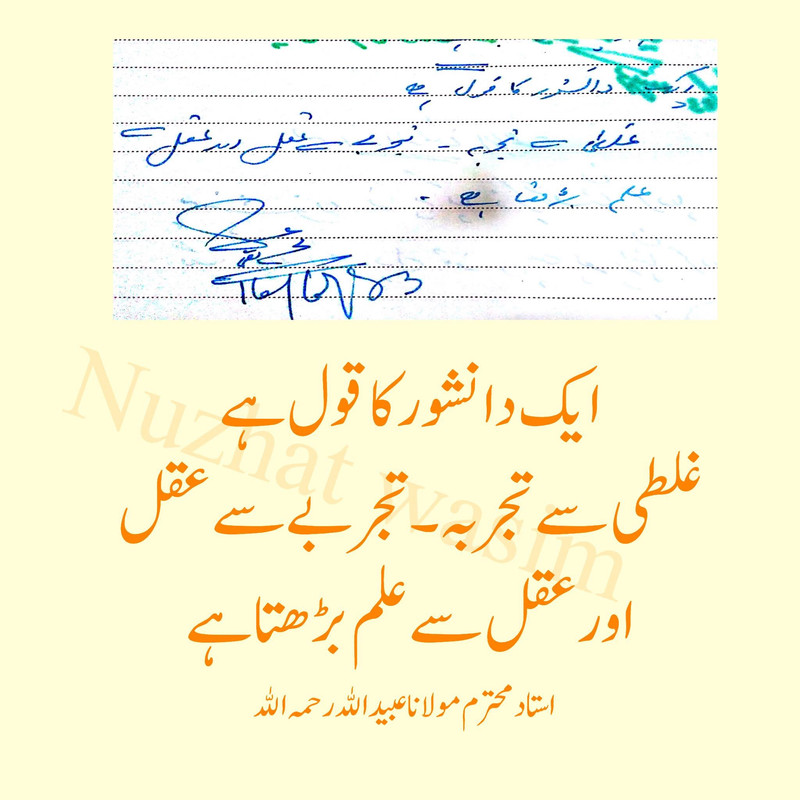 ایک دانشور کا قول ہے
غلطی سے تجربہ - تجربے سے عقل اور عقل سے
علم بڑھتا ہے -
ایک دانشور کا قول ہے
غلطی سے تجربہ۔ تجربے سے عقل
اور عقل سے علم بڑھتا ہے
استاد محترم مولانا عبید اللہ رحمہ اللہ
Nuzhat wasim